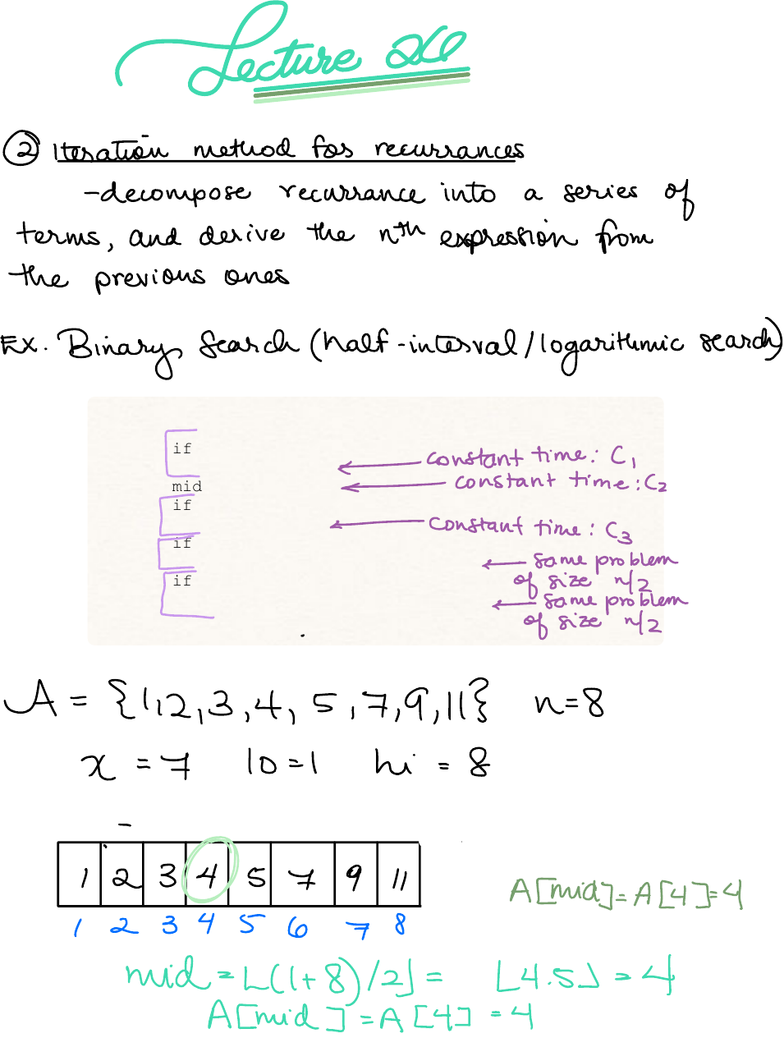 Lecture 26
② Iteration method for recurrances
-decompose recurrance into a series of
terms, and derive the nth expression from
the previous ones
Ex. Binary Search (half-interval/logarithmic search)
if
← constant time: C₁
mid
← constant time: C₂
if
← constant time: C₃
if
← same problem
of size n/2
if
← same problem
of size n/2
A = {1,2,3,4,5,7,9,11} n=8
x = 7 lo=1 hi = 8
1 2 3 4 5 7 9 11
1 2 3 4 5 6 7 8
A[mid]=A[4]=4
mid = ⌊(1+8)/2⌋ = ⌊4.5⌋ = 4
A[mid] = A[4] = 4